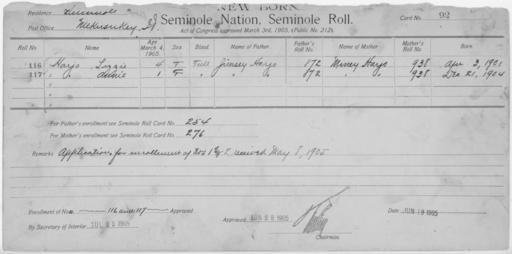 NEW BORN
Residence Seminole
Seminole Nation, Seminole Roll.
Card No. 92
Post Office I.T.
Act of Congress approved March 3rd, 1905, (Public No. 212).
Roll No. Name Age March 4, 1905. Sex Blood Name of Father Father's Roll No. Name of Mother Mother's Roll No. Born
116 Hays, Lizzie 4 F Full Jimsey Hays 172 Hays 938 Apr 2, 1901
117 " Annie 1 F " " " 172 " " 938 Dec 21, 1904
For Father's enrollment see Seminole Roll Card No. 254
For Mother's enrollment see Seminole Roll Card No. 276
Remarks Application for enrollment of Nos 1 & 2 received May 8, 1905
Enrollment of Nos. 116 and 117 Approved
By Secretary of Interior 1905
Approved 1905
Chairman.
Date JUN 19 1905